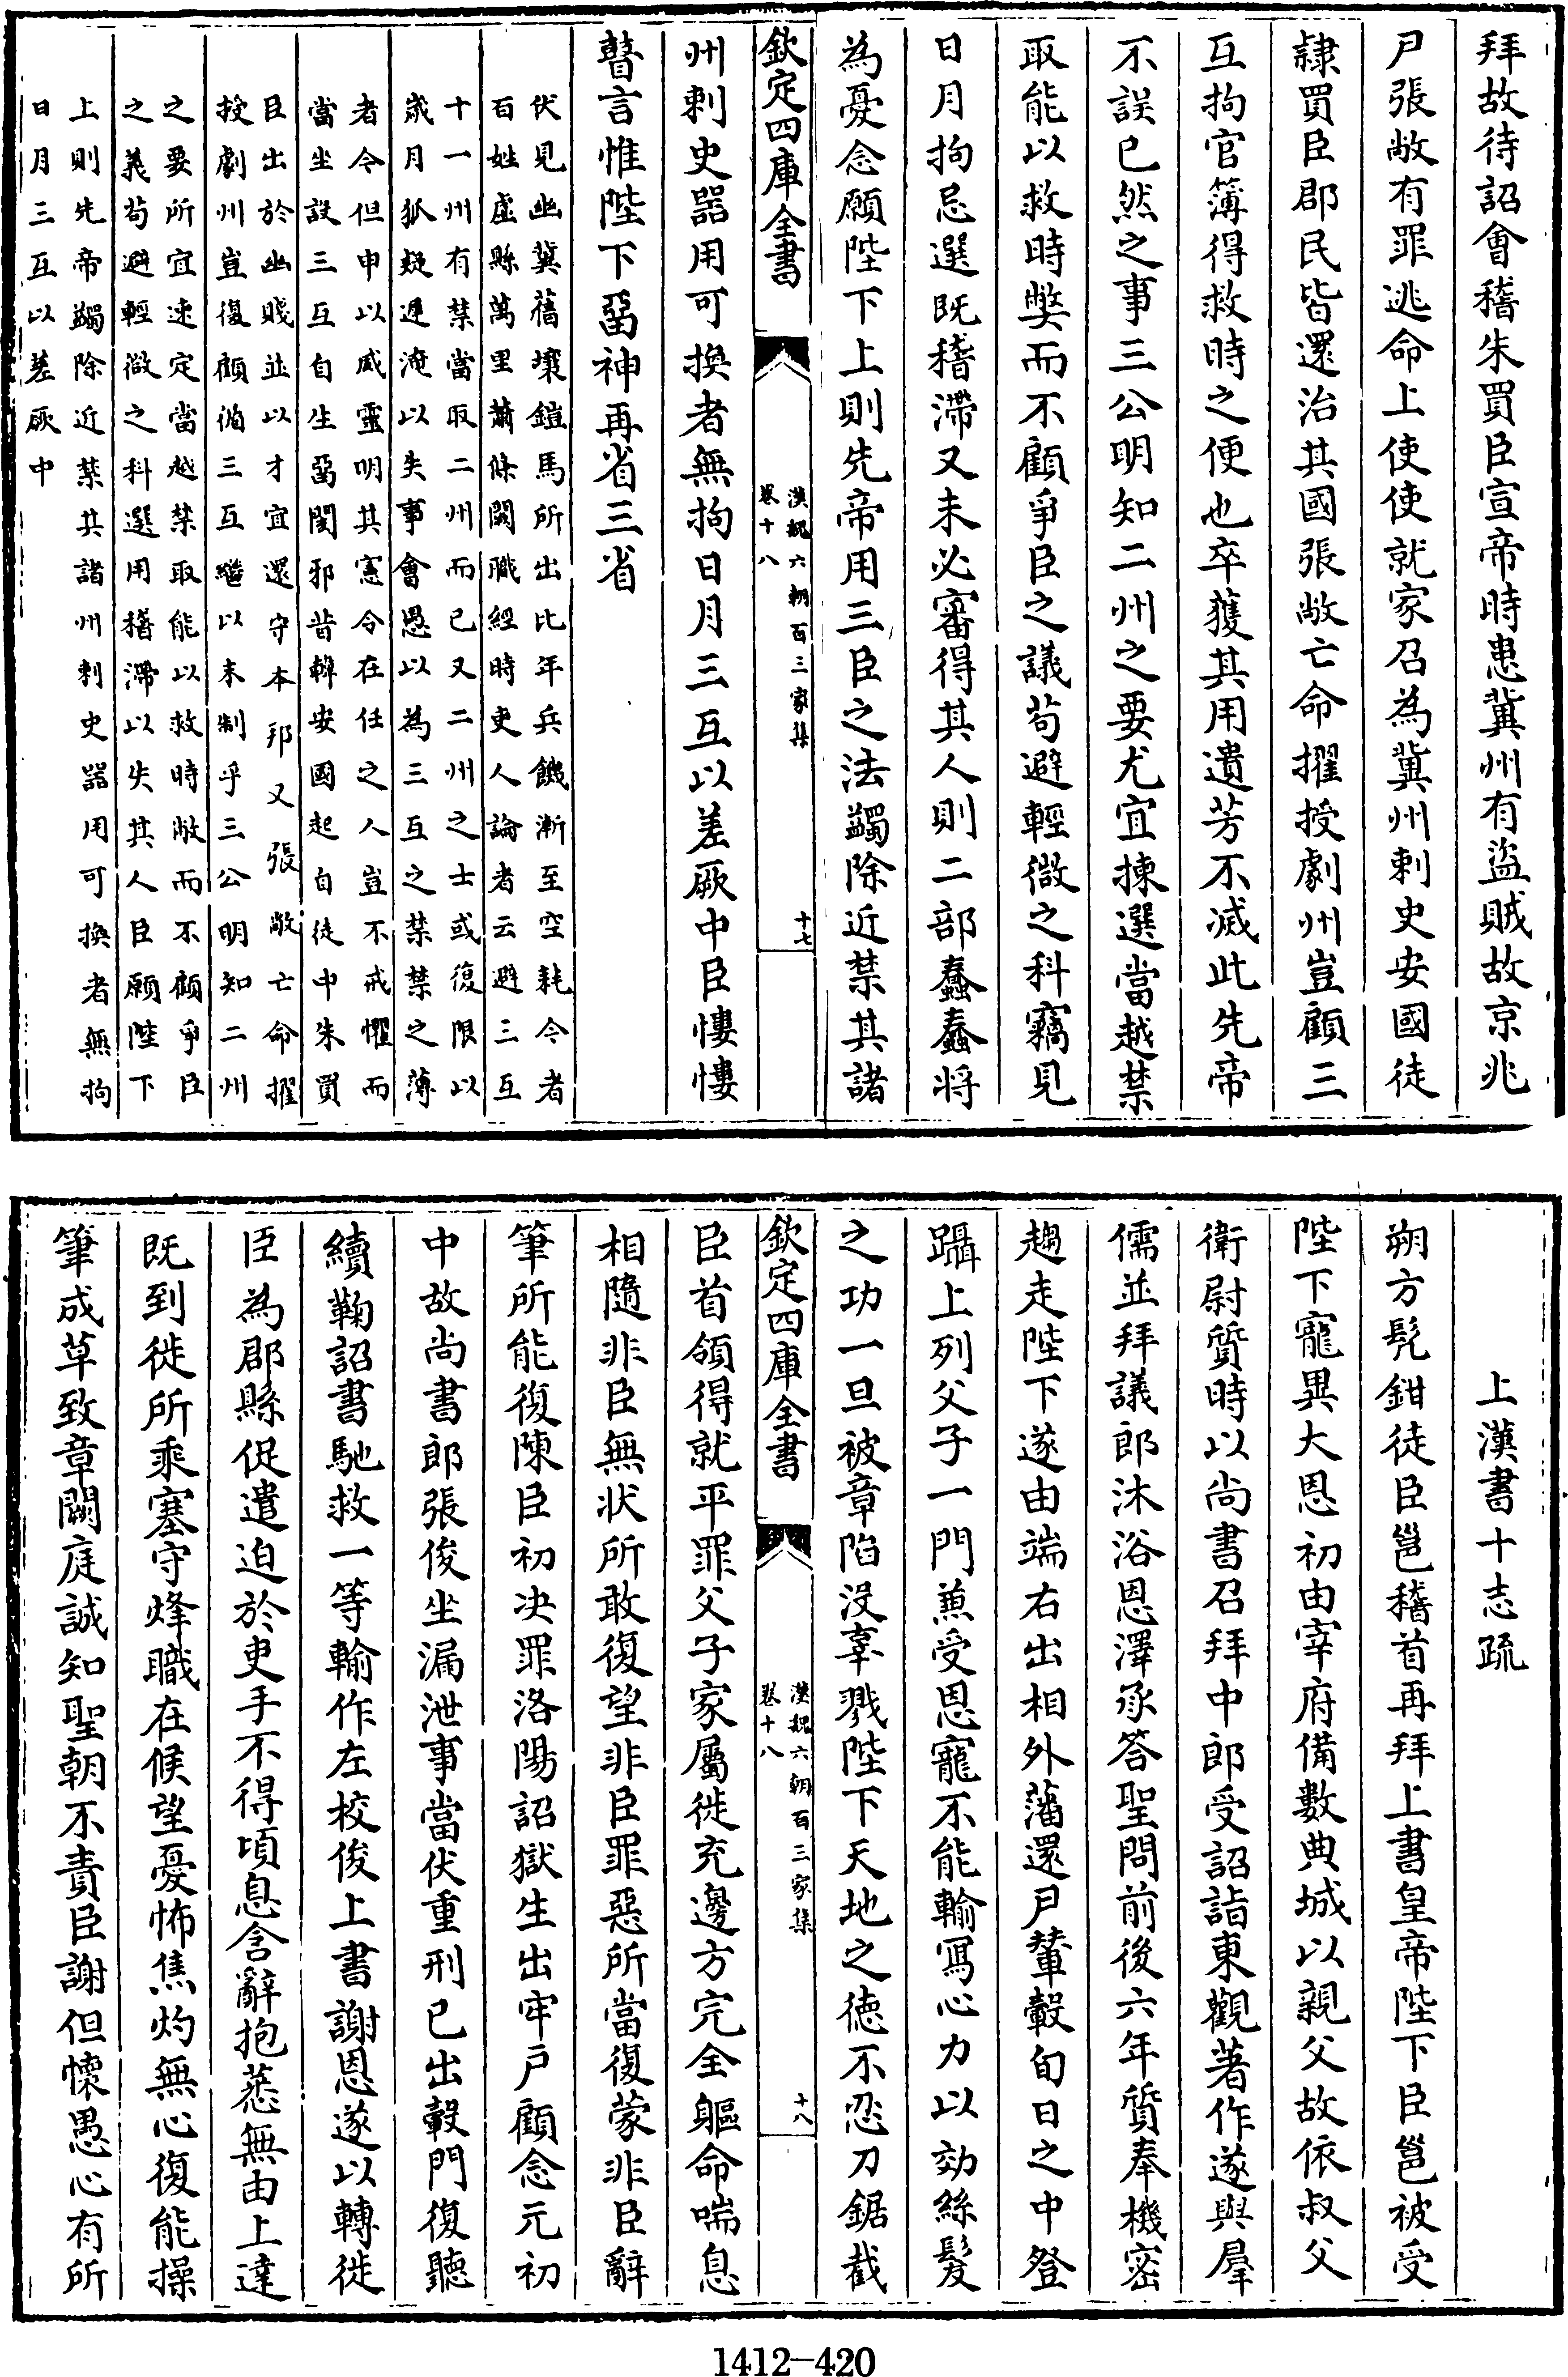 拜故待詔會稽朱買臣宣帝時患冀州有盜賊故京兆
尹張敞有罪逃命上使使就家召為冀州刺史安國徒
隷買臣郡民皆還治其國張敞亡命擢授劇州豈顧三
互拘官簿得救時之便也卒獲其用遺芳不滅此先帝
不誤已然之事三公明知二州之要尤宜揀選當越禁
取能以救時獘而不顧爭臣之議苟避輕微之科竊見
日月拘忌選既稽滯又未必審得其人則二部蠢蠢将
為憂念願陛下上則先帝用三臣之法蠲除近禁其諸
欽定四庫全書
漢魏六朝百三家集
卷十八
十七
州刺史器用可換者無拘日月三互以差厥中臣慺慺
瞽言惟陛下畱神再省三省
伏見幽冀舊壤鎧馬所出比年兵饑漸至空耗今者
百姓虛縣萬里蕭條闕職經時吏人論者云避三互
十一州有禁當取二州而已又二州之士或復限以
歲月狐疑遲淹以失事會愚以為三互之禁禁之薄
者今但申以威靈明其憲令在任之人豈不戒懼而
當坐設三互自生畱閡邪昔韓安國起自徒中朱買
臣出於幽賤並以才宜還守本邦又張敞亡命擢
授劇州豈復顧循三互繼以末制乎三公明知二州
之要所宜速定當越禁取能以救時敝而不顧爭臣
之義苟避輕微之科選用稽滯以失其人臣願陛下
上則先帝蠲除近禁其諸州刺史器用可換者無拘
日月三互以差厥中
上漢書十志疏
朔方髠鉗徒臣邕稽首再拜上書皇帝陛下臣邕被受
陛下寵異大恩初由宰府備數典城以親父故依叔父
衛尉質時以尚書召拜中郎受詔詣東觀著作遂與羣
儒並拜議郎沐浴恩澤承答聖問前後六年質奉機密
趨走陛下遂由端右出相外藩還尹輦轂旬日之中登
躡上列父子一門兼受恩寵不能輸寫心力以効絲髮
之功一旦被章陷没辜戮陛下天地之德不忍刀鋸截
欽定四庫全書
漢魏六朝百三家集
卷十八
十八
臣首領得就平罪父子家屬徙充邊方完全軀命喘息
相隨非臣無狀所敢復望非臣罪惡所當復蒙非臣辭
筆所能復陳臣初决罪洛陽詔獄生出牢戶顧念元初
中故尚書郎張俊坐漏泄事當伏重刑已出轂門復聽
續鞠詔書馳救一等輸作左校俊上書謝恩遂以轉徙
臣為郡縣促遣迫於吏手不得頃息含辭抱悲無由上達
既到徙所乘塞守烽職在候望憂怖焦灼無心復能操
筆成草致章闕庭誠知聖朝不責臣謝但懷愚心有所
1412-420